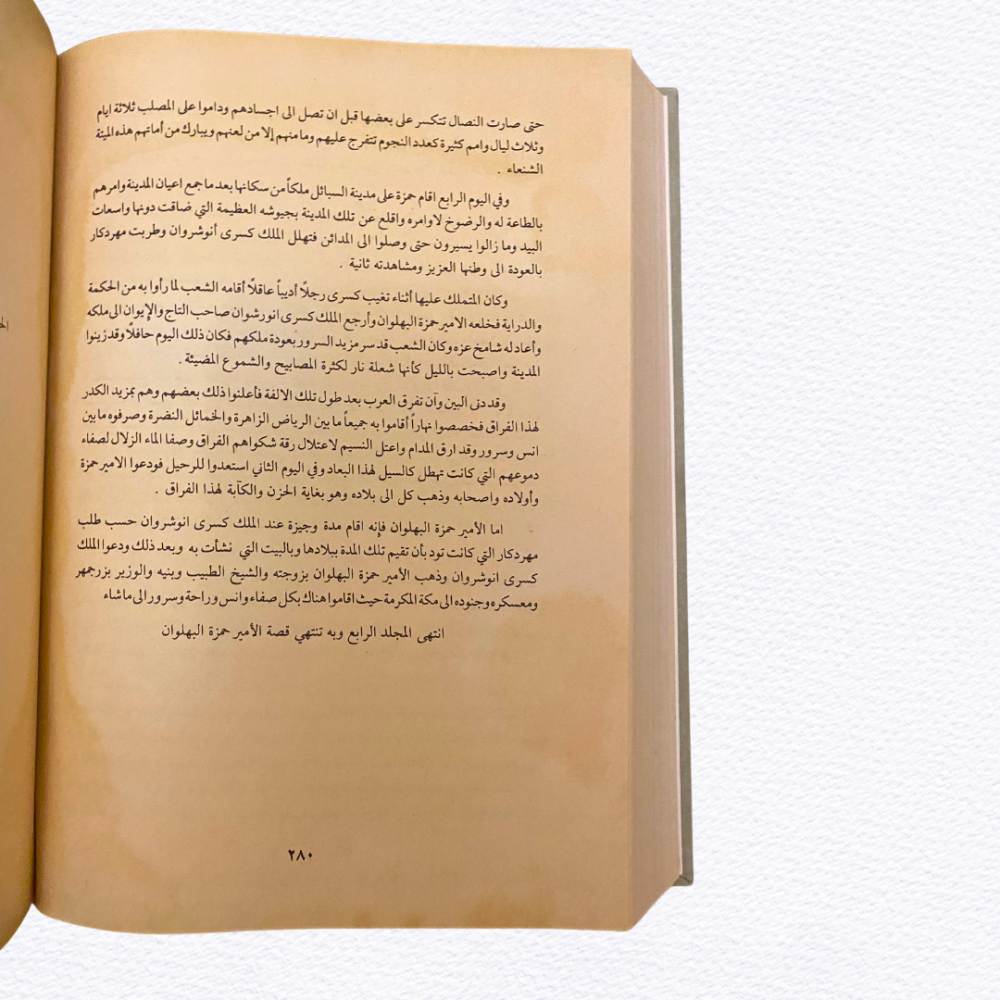 حتى صارت النصال تتكسر على بعضها قبل ان تصل الى اجسادهم وداموا على المصلب ثلاثة ايام
وثلاث ليال وامم كثيرة كعدد النجوم تتفرج عليهم وما منهم إلا من لعنهم ويبارك من أماتهم هذه الميتة
الشنعاء .
وفي اليوم الرابع اقام حمزة على مدينة السبائل ملكاً من سكانها بعد ما جمع اعيان المدينة وامرهم
بالطاعة له والرضوخ لاوامره واقلع عن تلك المدينة بجيوشه العظيمة التي ضاقت دونها واسعات
البيد وما زالوا يسيرون حتى وصلوا الى المدائن فتهلل الملك كسرى أنوشروان وطربت مهردكار
بالعودة الى وطنها العزيز ومشاهدته ثانية .
وكان المتملك عليها أثناء تغيب كسرى رجلاً أديباً عاقلاً أقامه الشعب لما رأوا به من الحكمة
والدراية فخلعه الامير حمزة البهلوان وأرجع الملك كسرى انورشوان صاحب التاج والإيوان الى ملكه
وأعاد له شامخ عزه وكان الشعب قد سر مزيد السرور بعودة ملكهم فكان ذلك اليوم حافلاً وقد زينوا
المدينة واصبحت بالليل كأنها شعلة نار لكثرة المصابيح والشموع المضيئة .
وقد دنى البين وآن تفرق العرب بعد طول تلك الالفة فأعلنوا ذلك بعضهم وهم بمزيد الكدر
لهذا الفراق فخصصوا نهاراً أقاموا به جميعاً ما بين الرياض الزاهرة والخمائل النضرة وصرفوه ما بين
انس وسرور وقد ارق المدام واعتل النسيم لاعتلال رقة شكواهم الفراق وصفا الماء الزلال لصفاء
دموعهم التي كانت تهطل كالسيل لهذا البعاد وفي اليوم الثاني استعدوا للرحيل فودعوا الامير حمزة
وأولاده واصحابه وذهب كل الى بلاده وهو بغاية الحزن والكآبة لهذا الفراق .
اما الأمير حمزة البهلوان فإنه اقام مدة وجيزة عند الملك كسرى انوشروان حسب طلب
مهردكار التي كانت تود بأن تقيم تلك المدة ببلادها وبالبيت التي نشأت به وبعد ذلك ودعوا الملك
كسرى انوشروان وذهب الأمير حمزة البهلوان بزوجته والشيخ الطبيب وبنيه والوزير بزرجمهر
ومعسكره وجنوده الى مكة المكرمة حيث اقاموا هناك بكل صفاء وانس وراحة وسرور الى ما شاء
انتهى المجلد الرابع وبه تنتهي قصة الأمير حمزة البهلوان
٢٨٠